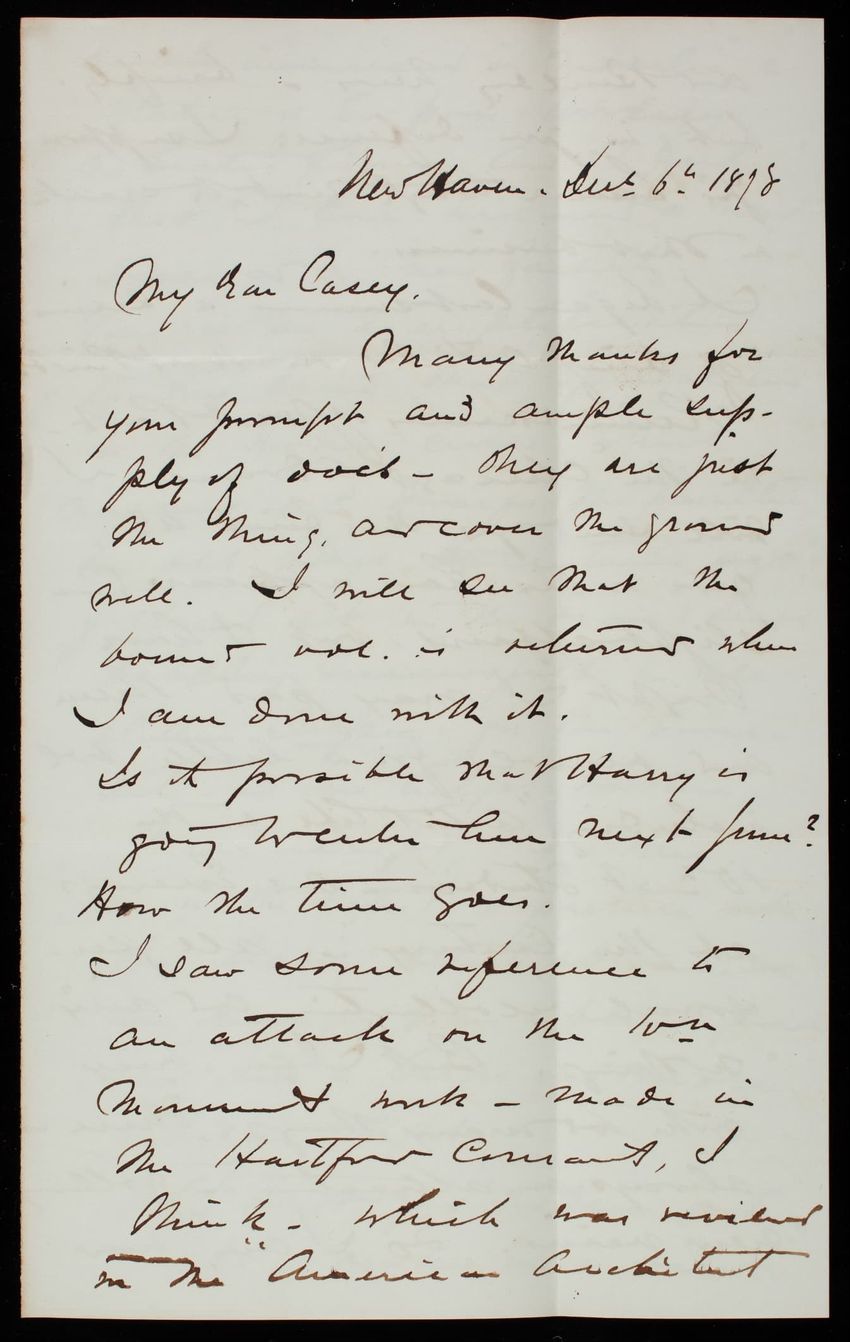 New Haven. Dec 6th 1878
My dear Casey.
Many thanks for
your prompt and ample sup-
ply of doc's - They are just
the thing, and cover the ground
well. I will see that the
bound vol. is returned when
I am done with it.
Is it possible that Harry is
going to enter here next June?
How the time goes.
I saw some reference to
an attack on the Wn
Monument work - made in
the Hartford Courant, I
think - which was reviewed
in the "American Architect